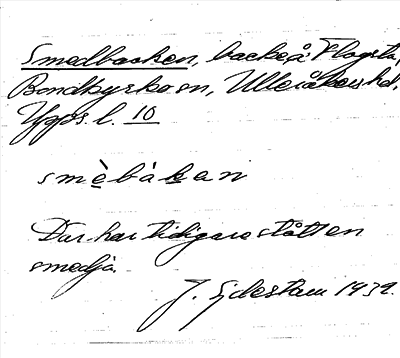 Smedbacken, backe å Flogsta,
Bondkyrko sn, Ulleråkers hd,
Upps. l. 10
smèbàkan
Där har tidigare stått en
smedja.
J. Sjdestam 1932.